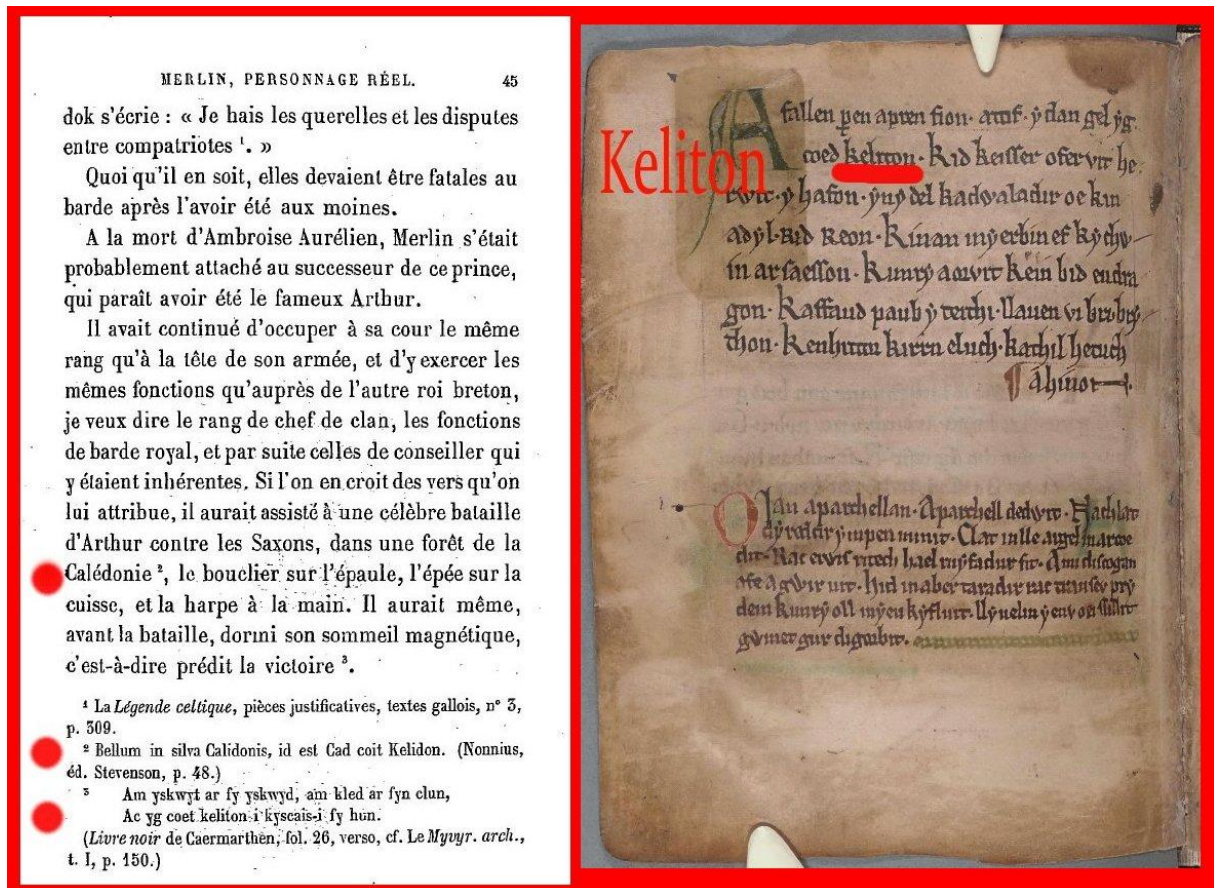 MERLIN, PERSONNAGE RÉEL. 45
dok s'écrie : « Je hais les querelles et les disputes
entre compatriotes ¹. »
Quoi qu'il en soit, elles devaient être fatales au
barde après l'avoir été aux moines.
A la mort d'Ambroise Aurélien, Merlin s'était
probablement attaché au successeur de ce prince,
qui paraît avoir été le fameux Arthur.
Il avait continué d'occuper à sa cour le même
rang qu'à la tête de son armée, et d'y exercer les
mêmes fonctions qu'auprès de l'autre roi breton,
je veux dire le rang de chef de clan, les fonctions
de barde royal, et par suite celles de conseiller qui
y étaient inhérentes. Si l'on en croit des vers qu'on
lui attribue, il aurait assisté à une célèbre bataille
d'Arthur contre les Saxons, dans une forêt de la
Calédonie ², le bouclier sur l'épaule, l'épée sur la
cuisse, et la harpe à la main. Il aurait même,
avant la bataille, dormi son sommeil magnétique,
c'est-à-dire prédit la victoire ³.
¹ La Légende celtique, pièces justificatives, textes gallois, n° 3,
p. 309.
² Bellum in silva Calidonis, id est Cad coit Kelidon. (Nonnius,
éd. Stevenson, p. 48.)
³ Am yskwyt ar fy yskwyd, am kled ar fyn clun,
Ac yg coet keliton i kyscais-i fy hun.
(Livre noir de Caermarthen, fol. 26, verso, cf. Le Myvyr. arch.,
t. I, p. 150.)
Keliton
Afallen peren apren fion. atif. ẏ dan gel ẏg
coed keliton. Kid keisser ofer vit he
rwit. ẏ hafon. ẏnẏ del kadwaladir oe kin
adẏl. rid reon. Kinan inẏ erbin ef kẏchw
in ar saesson. Kimrẏ a orvit kein bid eu dra
gon. Kaffaud paub ẏ teithi. llauen vi bri brẏ
thon. Kenhittor kirrn eluch. kathil hetuch
Ahinon
Oian aparchellan. Aparchell dedwit. Nachlat
dẏ redcir ẏmpen minit. Clat in lle argel
dit. Rac erwis ritech hael ruẏfadur fit. Ami discogan
afe a gwir uit. hid in aber taradir rac prẏ
dein kimrẏ oll in eu kẏfluit. llẏuelin ẏ env
gwinet gur digorbit.